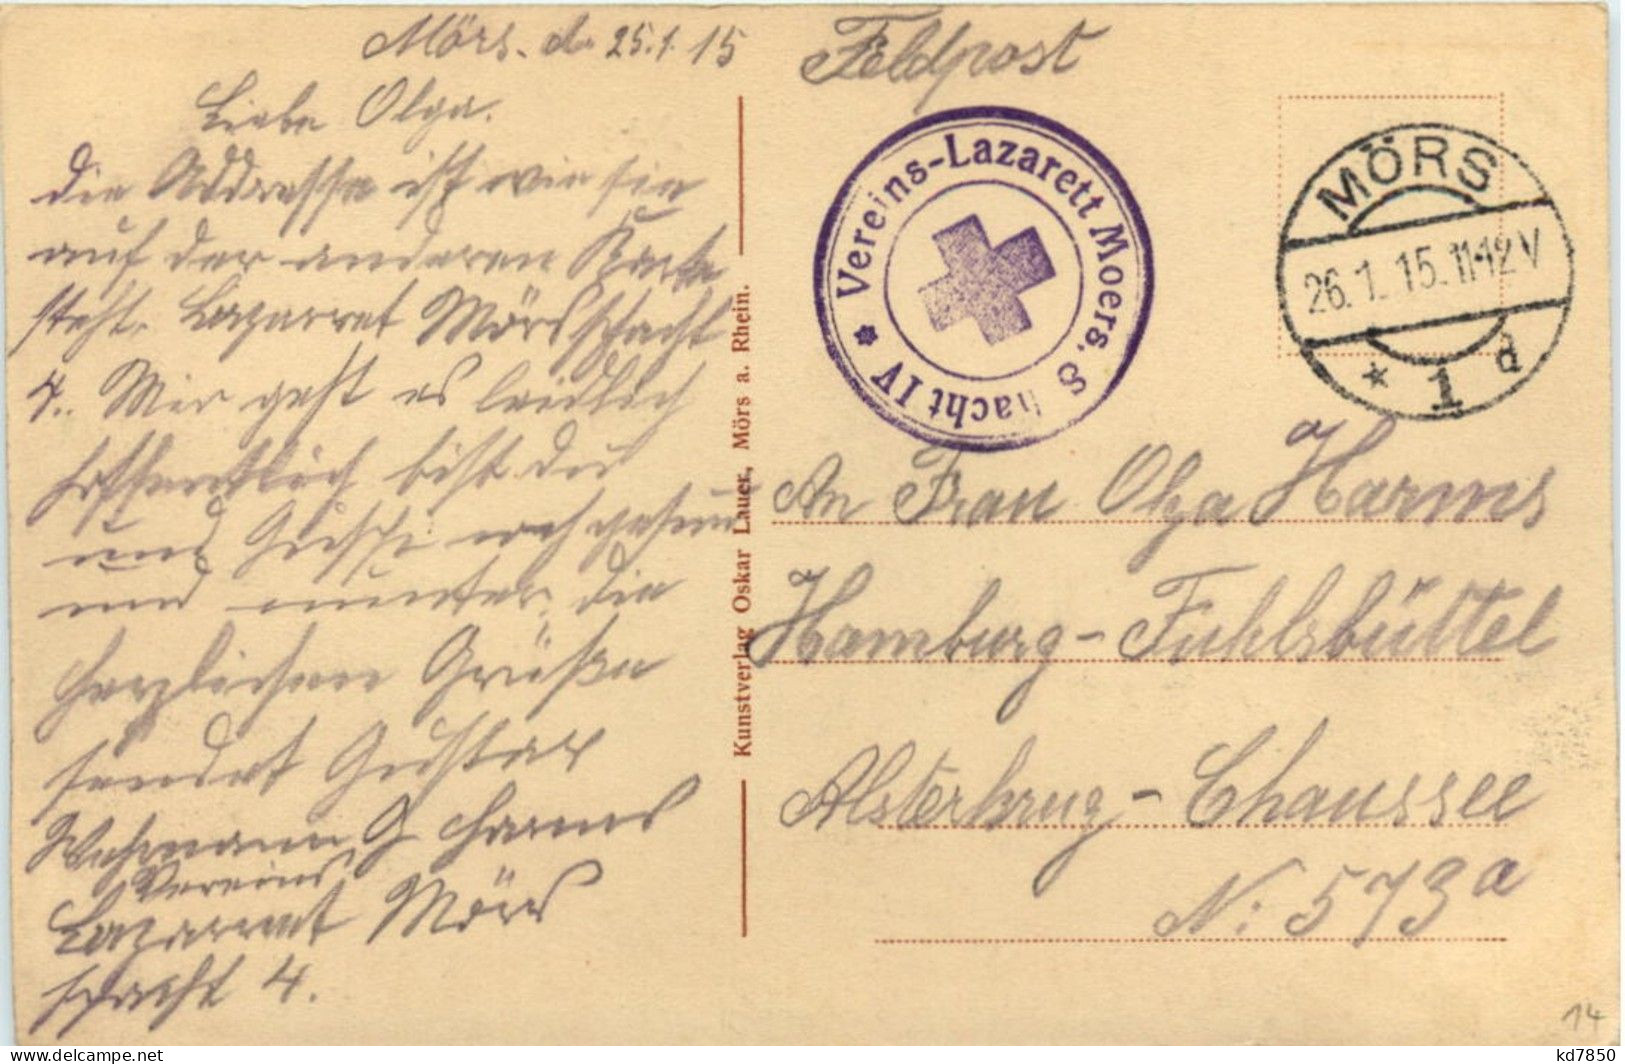 Mörs. d. 25.1.15
Liebe Olga.
die Addresse ist wie sie
auf der anderen Karte
steht. Lazarret Mörs Schacht
4. Mir geht es leidlich
hoffentlich bist du
und noch gesund
und munter, die
herzlichsten Grüße
sendet Gustav
Wehrmann G Harms
Vereins
Lazarret Mörs
schacht 4.
Kunstverlag Oskar Lauer, Mörs a. Rhein.
Feldpost
* Vereins-Lazarett Moers, S hacht IV
MÖRS
26.1.15.11-12V
* 1 d
An Frau Olga Harms
Hamburg-Fuhlsbüttel
Alsterkrug-Chaussee
N: 573a
14
kd7850